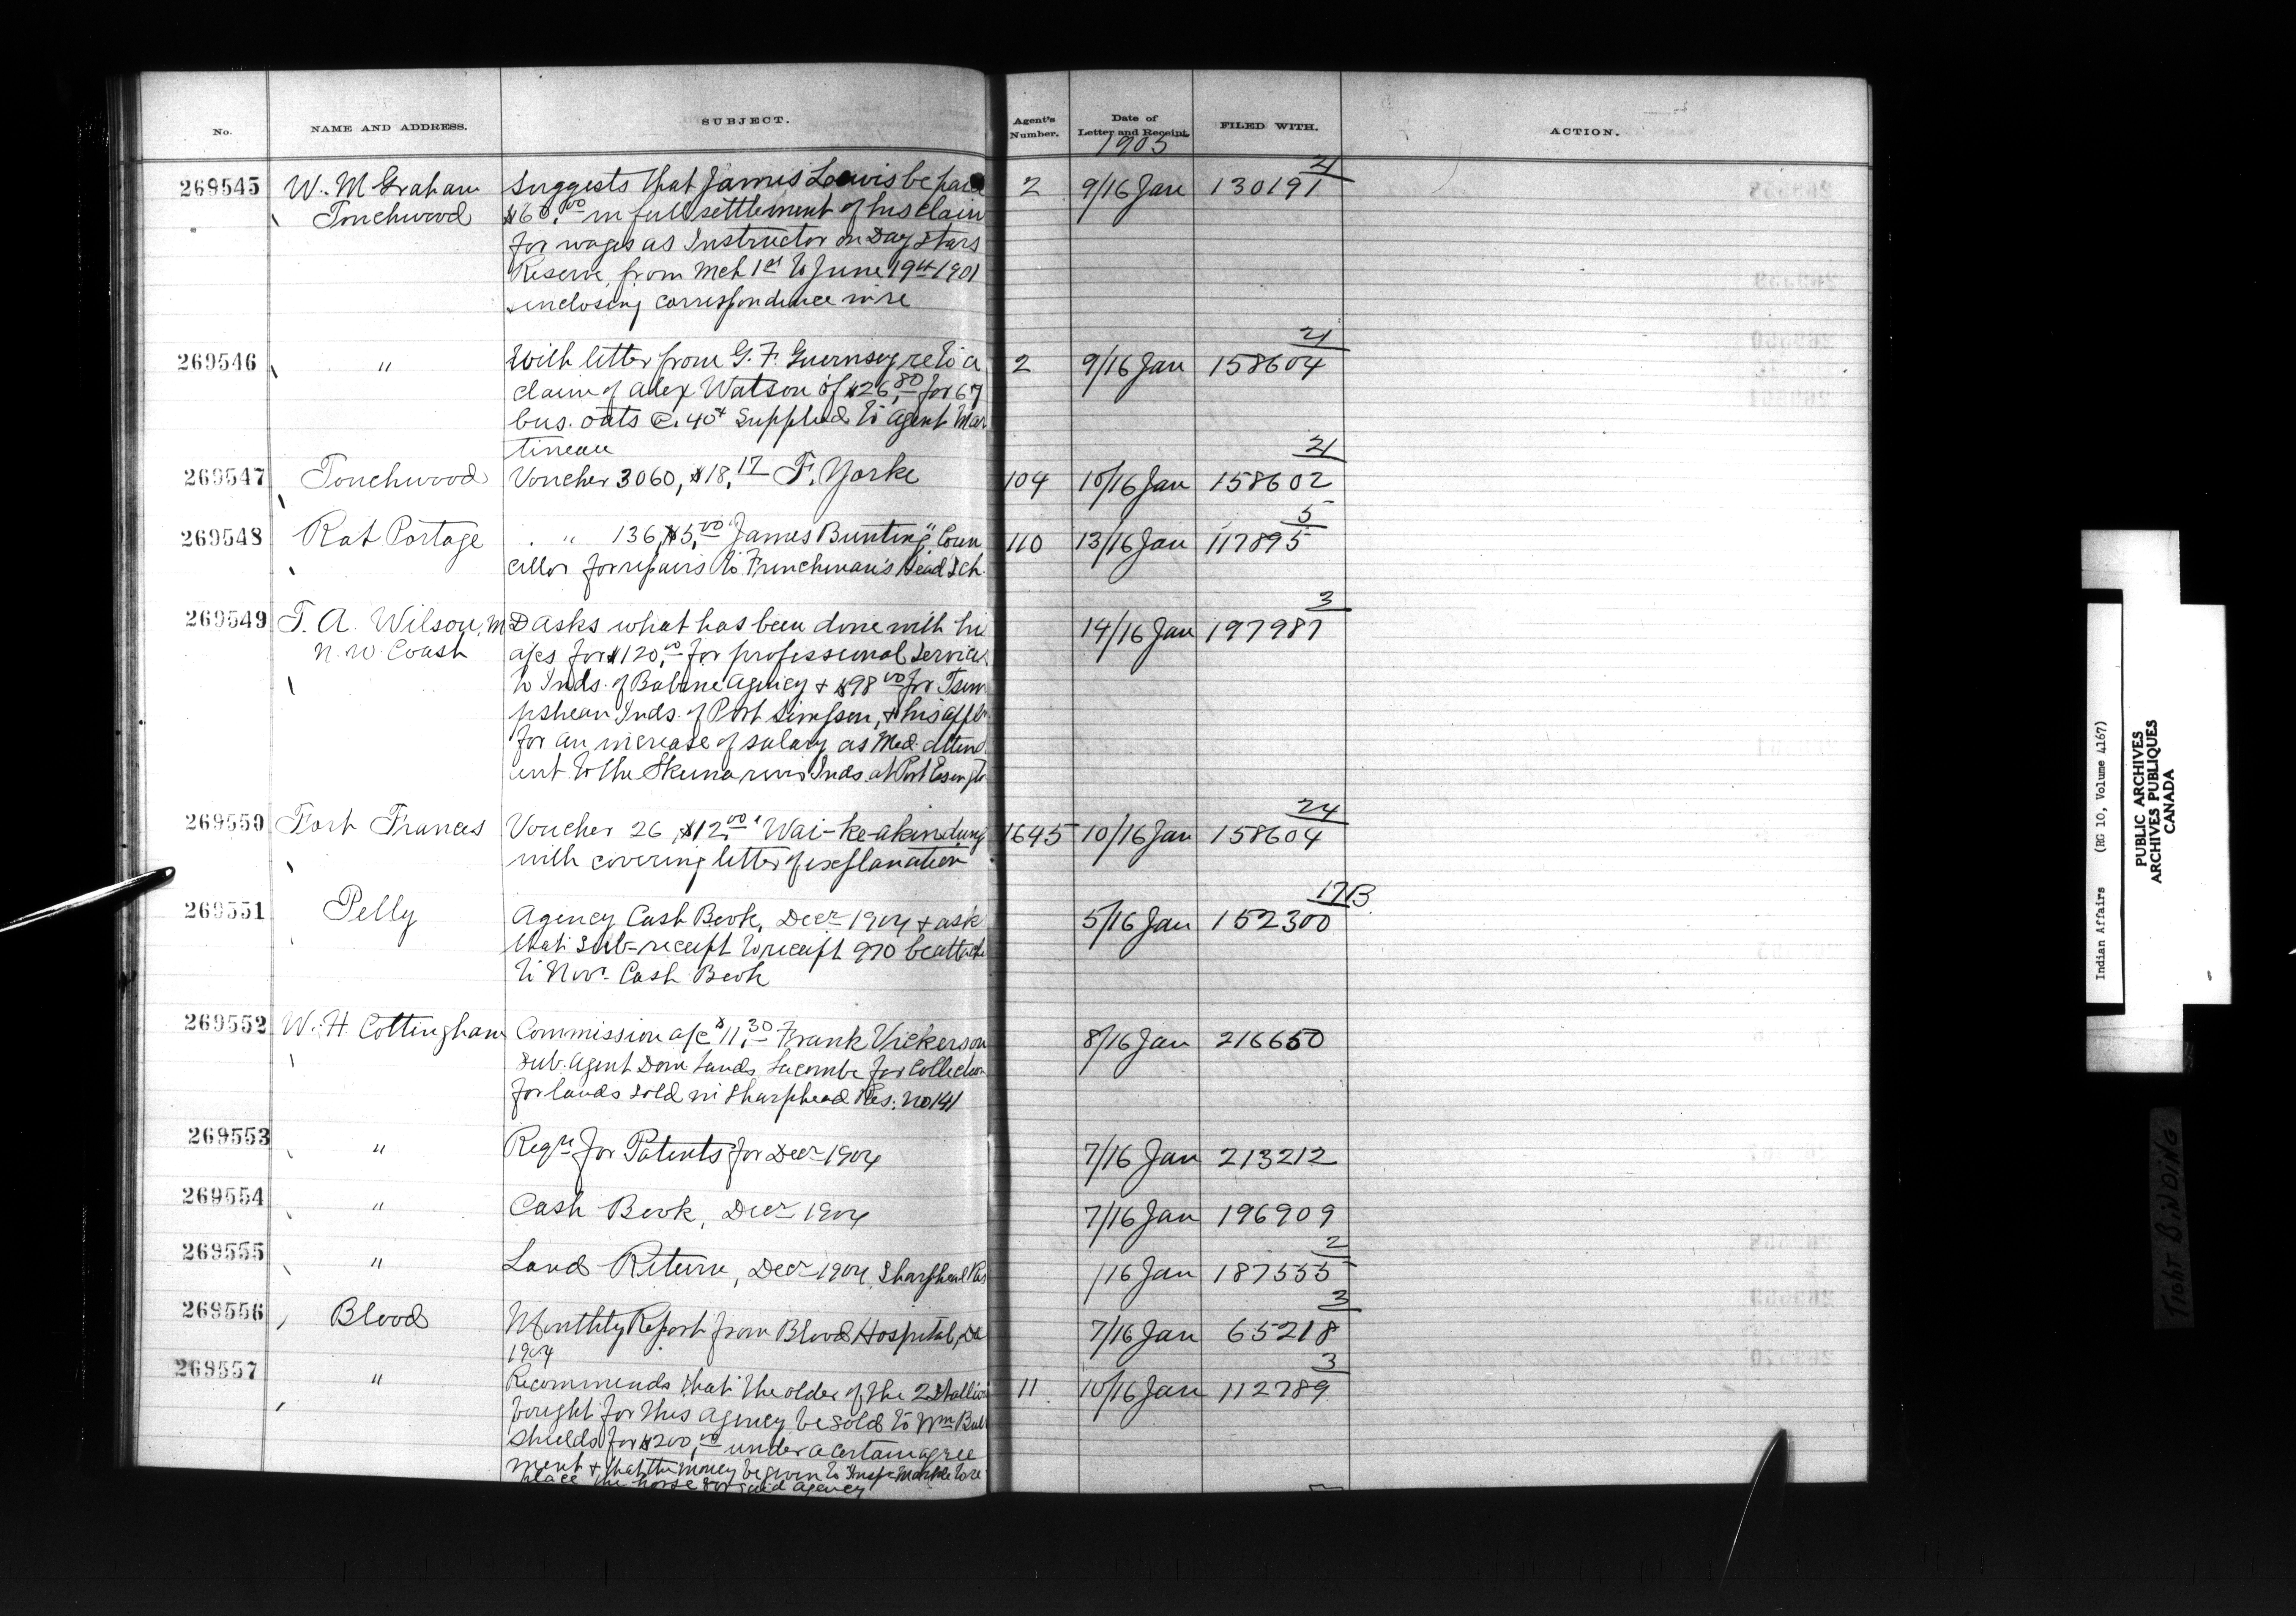 No. NAME AND ADDRESS. SUBJECT. Agent's Number. Date of Letter and Receipt. FILED WITH. ACTION.
1905
21
269545 W. M Graham Suggests that James Lewis be paid 2 9/16 Jan 130191
Touchwood $60.00 in full settlement of his claim
for wages as Instructor on Day Stars
Reserve, from Mch 1st to June 19th 1901
enclosing correspondence in re
21
269546 " With letter from G. F. Guernsey re to a 2 9/16 Jan 158604
claim of Alex Watson of $26.80 for 67
bus. oats @ .40 Supplied to Agent Mar
tineau
21
269547 Touchwood Voucher 3060, $18.17 F. Yorke 104 10/16 Jan 158602
5
269548 Rat Portage " 136, $5.00 "James Bunting" Coun 110 13/16 Jan 117895
cillor for repairs to Frenchman's Head Sch.
3
269549 T. A. Wilson, M D asks what has been done with hi 14/16 Jan 197987
N. W. Coast a/cs for $120.00 for professional services
to Inds. of Babine Agency & $98.00 for Tsim
pshean Inds. of Port Simpson, & his appln
for an increase of salary as Med. attend
ent to the Skeena river Inds. at Port Essington
24
269550 Fort Frances Voucher 26, $12.00 "Wai-ke-akindung 1645 10/16 Jan 158604
with covering letter of explanation
17B
269551 Pelly Agency Cash Book, Decr 1904 & ask 5/16 Jan 152300
that Sub-receipt to receipt 970 be attach
to Novr Cash Book
269552 W. H. Cottingham Commission a/c $11.30 Frank Vickerson 8/16 Jan 216650
Sub. Agent Dom Lands Lacombe for Collection
for lands sold in Sharphead Res. No 141
269553 " Reqn for Patents for Decr 1904 7/16 Jan 213212
269554 " Cash Book, Decr 1904 7/16 Jan 196909
2
269555 " Land Return, Decr 1904, Sharphead Res /16 Jan 187555
3
269556 Blood Monthly Report from Blood Hospital, De 7/16 Jan 65218
1904
3
269557 " Recommends that the older of the 2 Stallion 11 10/16 Jan 112789
bought for this agency be sold to Wm Bull
Shields for $200.00 under a certain agree
ment & that the money be given to Insp. Markle to re
place the horse for said agency
Indian Affairs (RG 10, Volume 4167)
PUBLIC ARCHIVES
ARCHIVES PUBLIQUES
CANADA
TIGHT BINDING